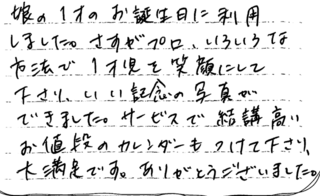 娘の1才のお誕生日に利用
しました。さすがプロ、いろいろな
方法で1才児を笑顔にして
下さり、いい記念の写真が
できました。サービスで結講高い
お値段のカレンダーもつけて下さり、
大満足です。ありがとうございました。